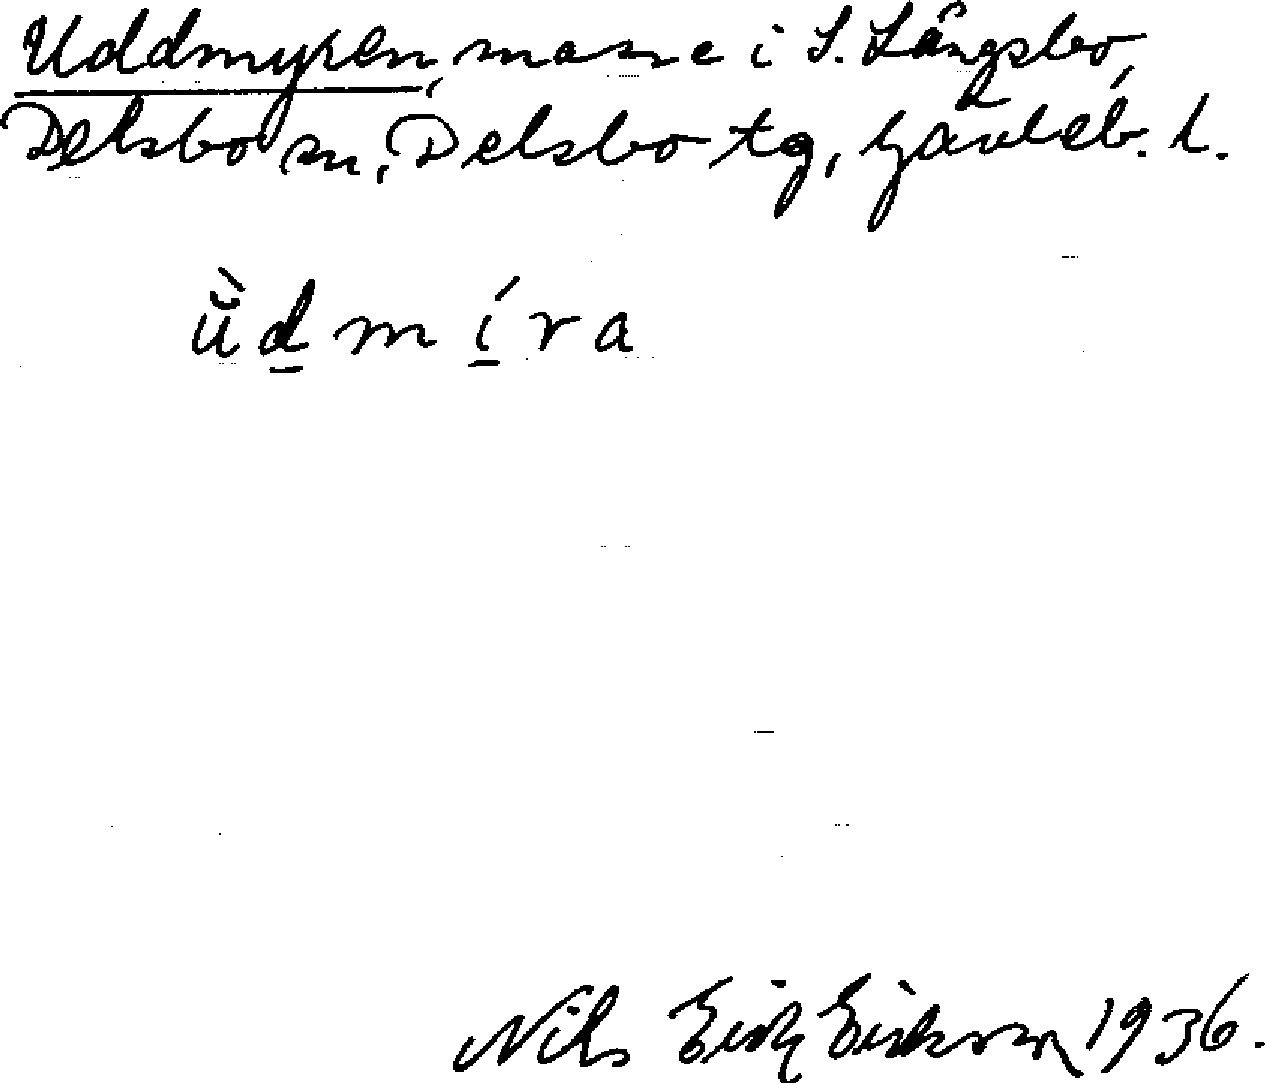 Uddmyren, mosse i S. Långsbo,
Delsbo sn, Delsbo tg, Gävleb. l.
ǜd̲ m í̲ r a
Nils Erik Eriksson 1936.